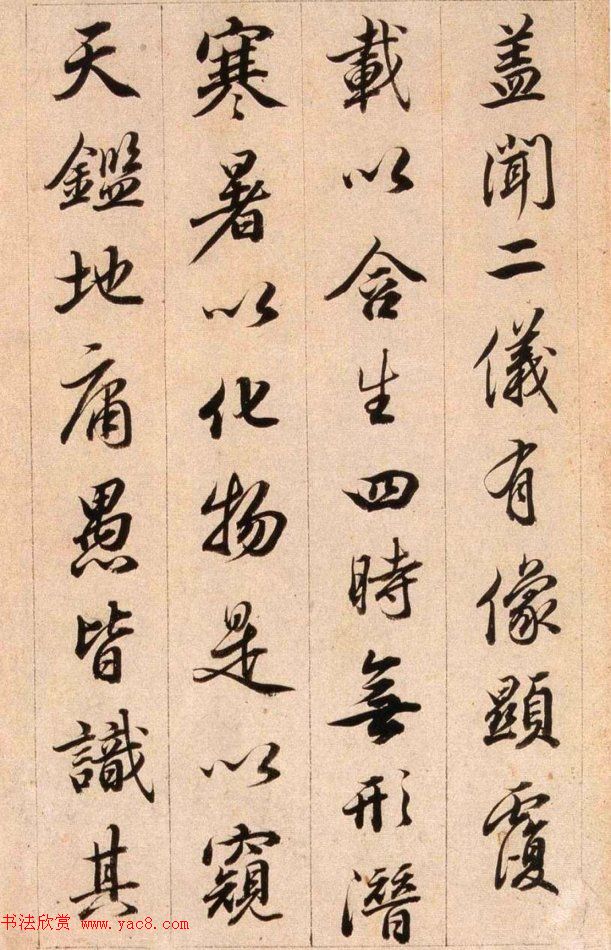 盖聞二儀有像顯覆
載以含生四時無形潛
寒暑以化物是以窺
天鑑地庸愚皆識其
书法欣赏 www.yac8.com